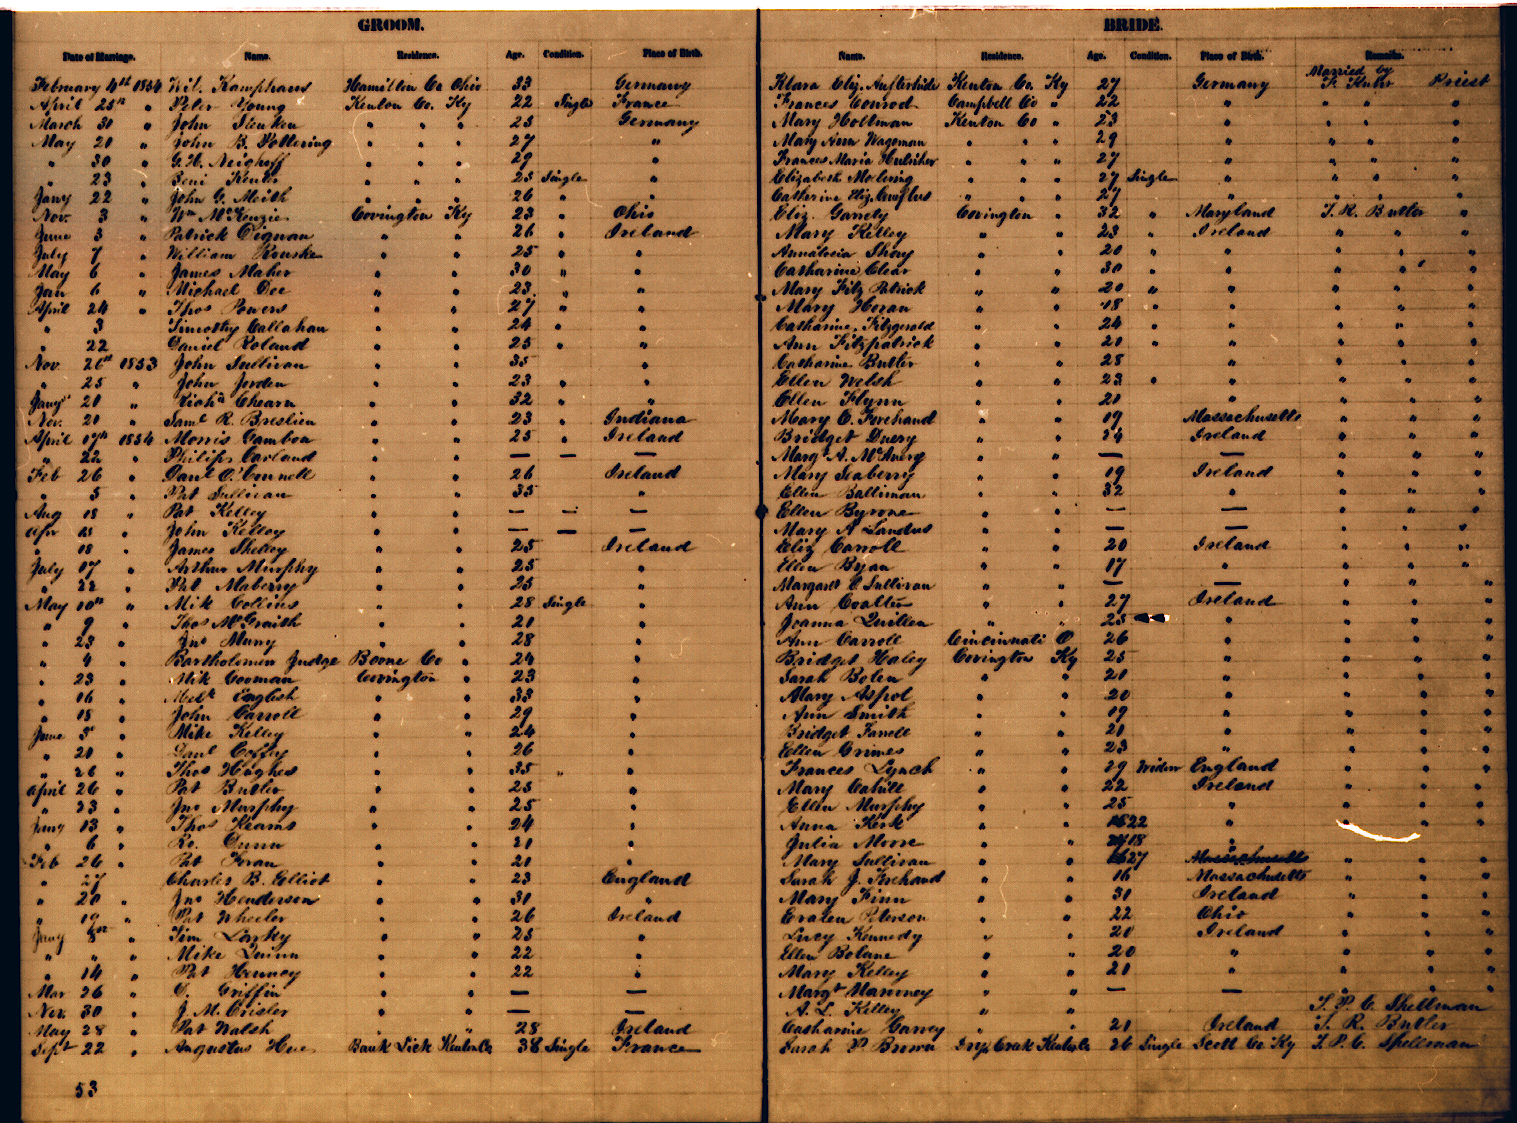 GROOM. BRIDE.
Date of Marriage. Name. Residence. Age. Condition. Place of Birth. Name. Residence. Age. Condition. Place of Birth. Remarks.
Married by
February 4th 1854 Wil. Kamphaus Hamilton Co Ohio 33 Germany Klara Eliz. Kenton Co. Ky 27 Germany F. Kuhr Priest
April 25th " Peter Young Kenton Co. Ky 22 Single France Frances Conrod Campbell Co " 22 " " " "
March 30 " John " " " 23 Germany Mary Holtman Kenton Co " 23 " " " "
May 20 " John B. Pottering " " " 27 " Mary Ann Wageman " " " 29 " " " "
" 30 " G. H. " " " 29 " Frances Maria " " " 27 " " " "
" 23 " Beni " " " 25 Single " Elizabeth Moelring " " " 27 Single " " " "
Jany 22 " John G. Meith " " " 26 " " Catherine Eliz. " " " 27 " " " "
Nov. 3 " Wm McKenzie Covington Ky 23 " Ohio Eliz. Garrety Covington " 32 " Maryland T. R. Butler "
June 3 " Patrick Dignan " " 26 " Ireland Mary Kelley " " 23 " Ireland " " "
July 7 " William " " 25 " " Shay " " 20 " " " " "
May 6 " James Maher " " 30 " " Catharine Clear " " 30 " " " " "
Jan 6 " Michael " " 23 " " Mary Fitz Patrick " " 20 " " " " "
April 24 " Thos Powers " " 27 " " Mary Horan " " 18 " " " " "
" 3 Timothy Callahan " " 24 " " Catharine Fitzgerald " " 24 " " " " "
" 22 Daniel Roland " " 25 " " Ann Fitzpatrick " " 20 " " " " "
Nov 26th 1853 John Sullivan " " 35 " Catharine Butler " " 28 " " " "
" 25 " John Jorden " " 23 " " Ellen Welsh " " 23 " " " " "
Jany 20 " Richd " " 32 " " Ellen Flynn " " 20 " " " "
Nov. 20 " Saml R. Breslien " " 23 " Indiana Mary C. Forehand " " 19 Massachusetts " " "
April 17th 1854 Morris " " 25 " Ireland Bridget " " 24 Ireland " " "
" 22 " Philip Garland " " — — — Margt A. " " — — " " "
Feb 26 " Danl O'Connell " " 26 Ireland Mary Seaberry " " 19 Ireland " " "
" 5 " Pat Sullivan " " 35 " Ellen Baltiman " " 32 " " " "
Aug 18 " Pat Kelley " " — — — Ellen Byrone " " — — " " "
Apr " John Kelley " " — — — Mary A " " — — " " "
" 18 " James " " 25 Ireland Eliz Carroll " " 20 Ireland " " "
July 17 " Arthur Murphy " " 25 " Ellen Ryan " " 17 " " " "
" 22 " Pat Maberry " " 25 " Margaret O Sullivan " " — — " " "
May 10th " Mik Collins " " 28 Single " Ann " " 27 Ireland " " "
" 9 " Thos McGraith " " 20 " Joanna Quillen " " 25 " " " "
" 23 " Jno Muny " " 28 " Ann Carroll Cincinnati O 26 " " " "
" 4 " Bartholomew Judge Boone Co " 24 " Bridget Haley Covington Ky 25 " " " "
" 23 " Mik Covington " 23 " Sarah Bolen " " 20 " " " "
" 16 " English " " 33 " Mary " " 20 " " " "
" 18 " John Carroll " " 29 " Ann Smith " " 19 " " " "
June 5 " Mike Kelley " " 24 " Bridget Farrell " " 20 " " " "
" 20 " Danl Coffey " " 26 " Ellen Grimes " " 23 " " " "
" 26 " Thos Hughes " " 35 " " Frances Lynch " " 29 Widow England " " "
April 26 " Pat Butler " " 25 " Mary Cahill " " 22 Ireland " " "
" 23 " Jno Murphy " " 25 " Ellen Murphy " " 25 " " " "
Jany 13 " Thos Kearns " " 24 " Anna Kerk " " 22 " " "
" 6 " Ro. Dunn " " 20 " Julia Moore " " 18 " " " "
Feb 26 " Pat " " 20 " Mary Sullivan " " 27 Massachusetts " " "
" 27 Charles B. Elliot " " 23 England Sarah J. Forehand " " 16 Massachusetts " " "
" 20 " Jno Henderson " " 30 " Mary Finn " " 30 Ireland " " "
" 19 " Pat Wheeler " " 26 Ireland Peterson " " 22 Ohio " " "
Jany " Tim " " 25 " Lucy Kennedy " " 20 Ireland " " "
" " " Mike Quinn " " 22 " Ellen Bolane " " 20 " " " "
" 14 " Pat " " 22 " Mary Kelley " " 20 " " " "
Mar 26 " Griffin " " — — Margt " " — — " " "
Nov. 30 " J. M. Crisler " " — A. L. Kelley " " T. P. C. Shellman
May 28 " Pat Walsh " " 28 Ireland Catharine Harvey " " 20 Ireland T. R. Butler
Sept 22 " Augustus Bank Lick Kenton Co 38 Single France Sarah P. Brown Dry Creek Kenton Co 26 Single Scott Co Ky T. P. C. Spellman
53